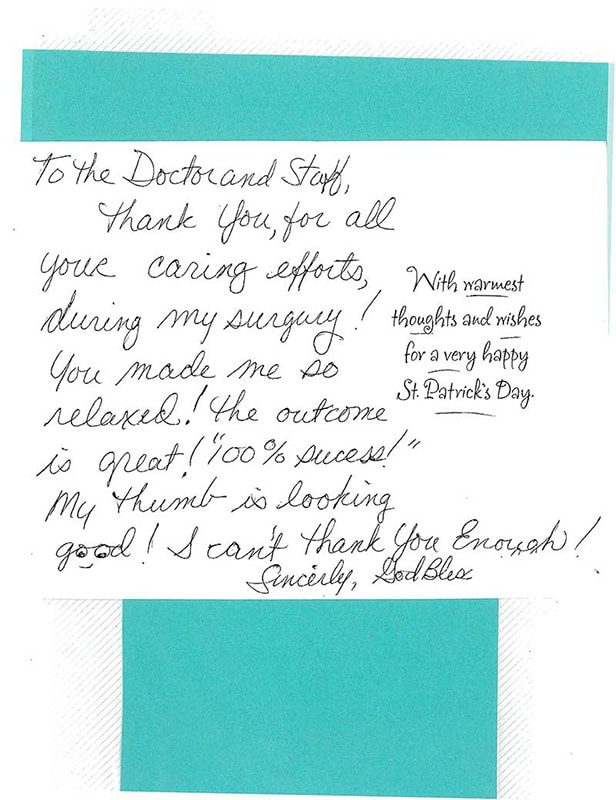 To the Doctor and Staff,
Thank You, for all
your caring efforts,
during my surgury!
You made me so
relaxed! the outcome
is great! "100% sucess!"
My thumb is looking
good! I can't thank You Enough!
Sincerly, God Bless
With warmest
thoughts and wishes
for a very happy
St. Patrick's Day.